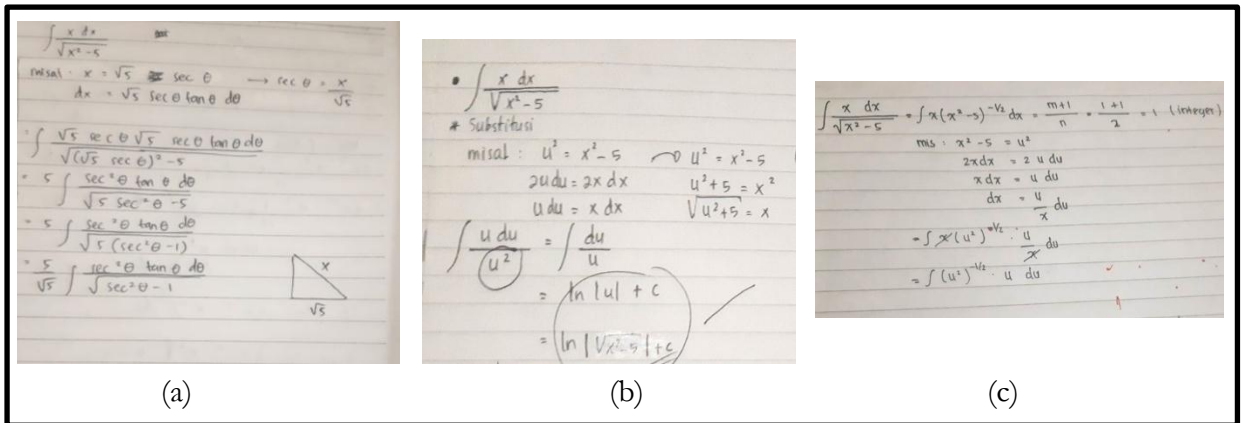 ∫ x dx / √(x² - 5)
misal : x = √5 sec θ → sec θ = x/√5
dx = √5 sec θ tan θ dθ
= ∫ √5 sec θ √5 sec θ tan θ dθ / √((√5 sec θ)² - 5)
= 5 ∫ sec² θ tan θ dθ / √(5 sec² θ - 5)
= 5 ∫ sec² θ tan θ dθ / √(5 (sec² θ - 1))
= 5/√5 ∫ sec² θ tan θ dθ / √(sec² θ - 1)
x
√5
(a)
• ∫ x dx / √(x² - 5)
* Substitusi
misal : u² = x² - 5 → u² = x² - 5
2u du = 2x dx u² + 5 = x²
u du = x dx √(u² + 5) = x
∫ u du / u² = ∫ du / u
= ln |u| + c
= ln |√(x² - 5)| + c
(b)
∫ x dx / √(x² - 5) = ∫ x (x² - 5)^(-1/2) dx = (m+1)/n = (1+1)/2 = 1 (integer)
mis : x² - 5 = u²
2x dx = 2 u du
x dx = u du
dx = u/x du
= ∫ x (u²)^(-1/2) · u/x du
= ∫ (u²)^(-1/2) · u du
(c)